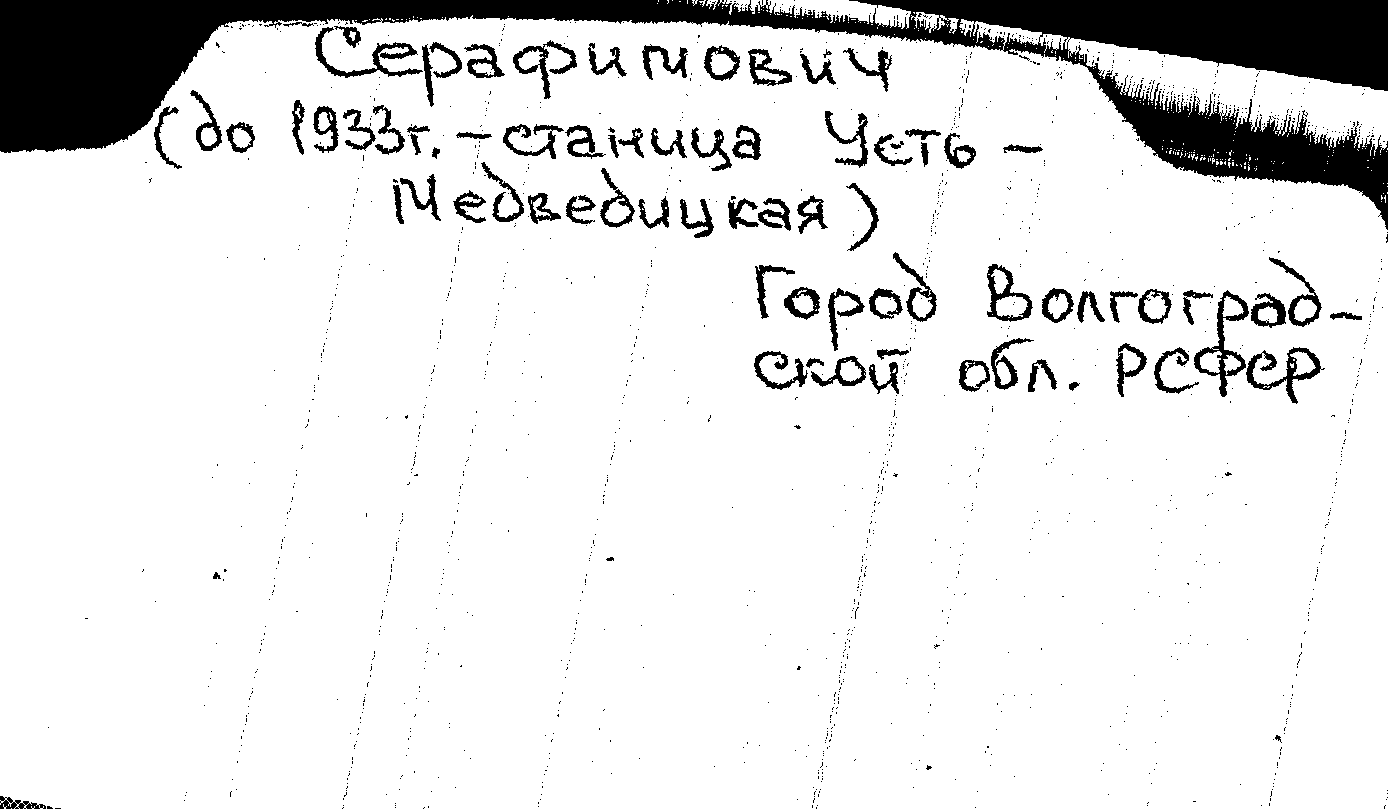 Серафимович
(до 1933г. - станица Усть -
Медведицкая)
Город Волгоград-
ской обл. РСФСР